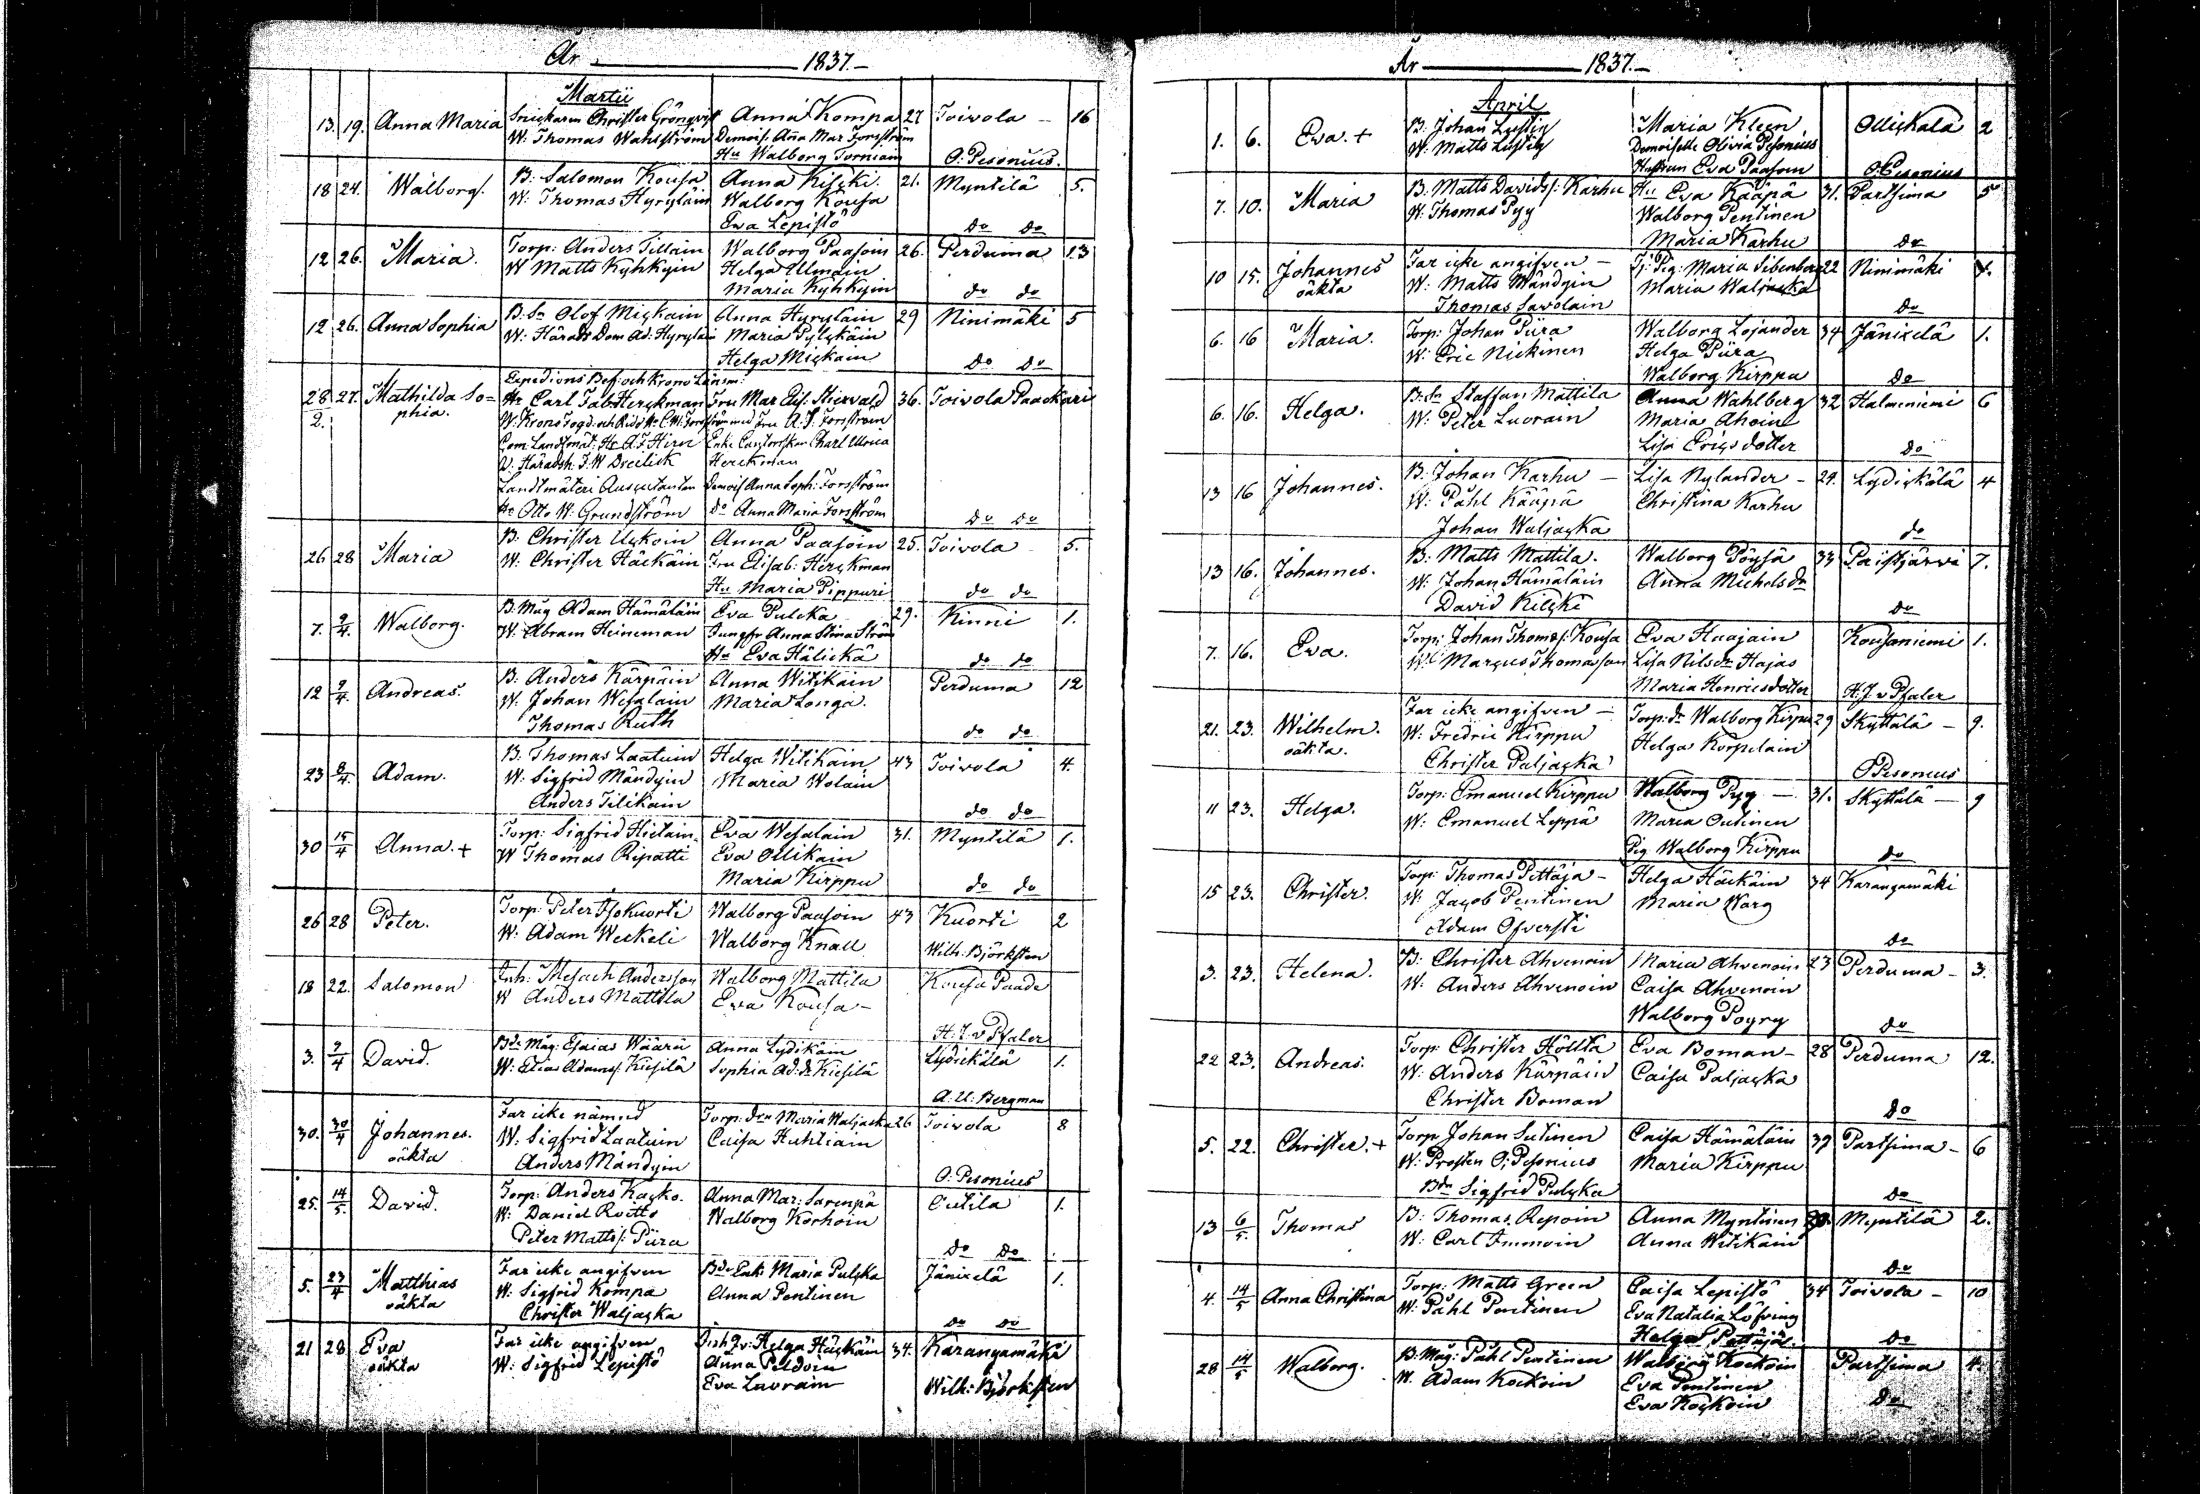 År 1837.
Martii
13. 19. Anna Maria Snickaren Christer Grönqvist Anna Kompa 27 Toivola 16
W. Thomas Wahlström Demois. Anna Mar Forsström
Hu Walborg Torniain O. Pesonius.
18 24. Walborg. B. Salomon Kousa Anna Kilcki. 21. Myntilä 5.
W. Thomas Hyryläin Walborg Kousa
Eva Lepistö do do
12 26. Maria. Torp: Anders Tillain Walborg Paasoin 26. Perduma 13
W Matts Kyhkyin Helga Ulmain
Maria Kyhkyin do do
12 26. Anna Sophia B. Sn Olof Mickain Anna Hyryläin 29 Ninimäki 5
W: Härads Dom Ad. Hyryläin Maria Pylckäin
Helga Mickain do do
28/2. 27. Mathilda So= Expeditions Bef: och Krono Länsm:
phia. Hr Carl Fab Herckman Fru Mar Elis. Stiervald 36. Toivola Paackari
W. Krono Fogd. och Ridd Hr C.W. Forsström med Fru A. S. Forsström
Com. Landtmät: Hr A. F. Hirn Enke Charl Ulrica
V. Häradsh. F. W Dreilick Herckman
Landtmäteri Auscultanten Demois Anna Soph: Forsström
Hr Otto W. Grundström do Anna Maria Forsström do do
26 28 Maria B. Christer Uckoin Anna Paasoin 25. Toivola 5.
W. Christer Häckäin Fru Elisab: Herckman
Hu Maria Pippuri do do
7. 9/4. Walborg. B. Måg Adam Hämäläin Eva Pulcka 29. Kinni 1.
W. Abram Heineman Jungfr Anna Stina Ström
Hu Eva Hälickä do do
12 9/4. Andreas. B. Anders Kärpäin Anna Witikain Perduma 12
W. Johan Wesalain Maria Longa.
Thomas Ruth do do
23 8/4. Adam. B. Thomas Laatuin Helga Witikain 43 Toivola 4.
W. Sigfrid Mändyin Maria Wolain
Anders Tilikain do do
30 15/4 Anna. + Torp: Sigfrid Hietain Eva Wesalain 31. Myntilä 1.
W Thomas Ripatti Eva Ollikain
Maria Kirppu do do
26 28 Peter. Torp: Peter Isokuorti Walborg Paasoin 43 Kuorti 2
W. Adam Weckeli Walborg Knall Wilh. Björksten
18 22. Salomon Inh: Mesach Andersson Walborg Mattila Kousa Paada
W Anders Mattila Eva Kousa H. J. v Pfaler
3. 9/4 David. Bdn Måg: Esaias Wäärii Anna Lydikäin Lydickälä 1.
W: Elias Adams/: Kiesilä Sophia Ad. dr Kiesilä A. U. Bergman
30. 30/4 Johannes. Far icke nämnd Torp: drn Maria Waljacka 26 Toivola 8
oäkta W. Sigfrid Laatuin Caisa Huhtiain
Anders Mändyin O. Pesonius
25. 14/5. David. Torp: Anders Kacko. Anna Mar: Sarenpä Outila 1.
W: Daniel Roitto Walborg Korhoin
Peter Matts/: Piira do do
5. 23/4 Matthias Far icke angifven Bdn Enk: Maria Pulcka Jänicelä 1.
oäkta W. Sigfrid Kompa Anna Pentinen
Christer Waljacka do do
21 28. Eva Far icke angifven Helga Häckäin 34. Karangamäki
oäkta W. Sigfrid Lepistö Anna Peldoin
Eva Lavrain Wilh: Björksten
År 1837.
April
1. 6. Eva. + B. Johan Lustig Maria Kleen Ollickala 2
W. Matts Lustig Demoiselle Olivia Pesonius
Hustrun Eva Paasoin O. Pesonius
7. 10. Maria B. Matts Davids/: Karhu Hu Eva Kääpä 31. Partsima 5
W. Thomas Pyy Walborg Pentinen
Maria Karhu do
10 15. Johannes Far icke angifven Tj: Pig: Maria Sibenberg 22 Ninimäki
oäkta W: Matts Mändyin Maria Waljacka
Thomas Savolain do
6. 16 Maria. Torp: Johan Piira Walborg Lojander 34 Jänicelä 1.
W: Eric Nickinen Helga Piira
Walborg Kirppu do
6. 16. Helga. B. dn Staffan Mattila Anna Wahlberg 32 Halmeniemi 6
W: Peter Luorain Maria Ahoin
Lisa Ericsdotter do
13 16 Johannes. B. Johan Karhu Lisa Nylander 29. Lydickälä 4
W: Påhl Kääpä Christina Karhu
Johan Waljacka do
13 16. Johannes. B. Matts Mattila. Walborg Pöysä 33 Paistjärvi 7.
W. Johan Hämäläin Anna Michelsdr
David Kilcki do
7. 16. Eva. Torp: Johan Thomas/: Kousa Eva Haajain Kousaniemi 1.
W. Marcus Thomasson Lisa Nilsdr Hajas
Maria Henricsdotter H. J. v Pfaler
21. 23. Wilhelm. Far icke angifven Torp: dr Walborg Kirppu 29 Skyttälä 9.
oäkta. W. Fredric Kirppu Helga Korpelain
Christer Paljacka O Pesonius
11 23. Helga. Torp: Emanuel Kirppu Walborg Pyy 31. Skyttälä 9
W: Emanuel Leppä Maria Outinen
Pig Walborg Kirppu do
15 23. Christer. Torp: Thomas Pettäjä Helga Häckäin 34 Karangamäki
W. Jacob Pentinen Maria Warg
Adam Öfversti do
3. 23. Helena. B. Christer Ahvenoin Maria Ahvenoin 23 Perduma 3.
W. Anders Ahvenoin Caisa Ahvenoin
Walborg Poyry do
22 23. Andreas. Torp: Christer Höltta Eva Boman 28 Perduma 12.
W. Anders Kärpäin Caisa Paljacka
Christer Boman do
5. 22. Christer. + Torp Johan Sutinen Caisa Hämäläin 39 Partsima 6
W: Prosten O: Pesonius Maria Kirppu
Bdn Sigfrid Pulcka do
13 6/5. Thomas B: Thomas Repoin Anna Myntinen Myntilä 2.
W. Carl Immoin Anna Witikain do
4. 14/5 Anna Christina Torp: Matts Green Caisa Lepistö 34 Toivola 10
W. Påhl Pentinen Eva Natalia Löfving
Helga Pettäjä. do
28 14/5 Walborg. B. Måg: Påhl Pentinen Walborg Kockoin Partsima 4.
W. Adam Kockoin Eva Pentinen
Eva Kockoin do